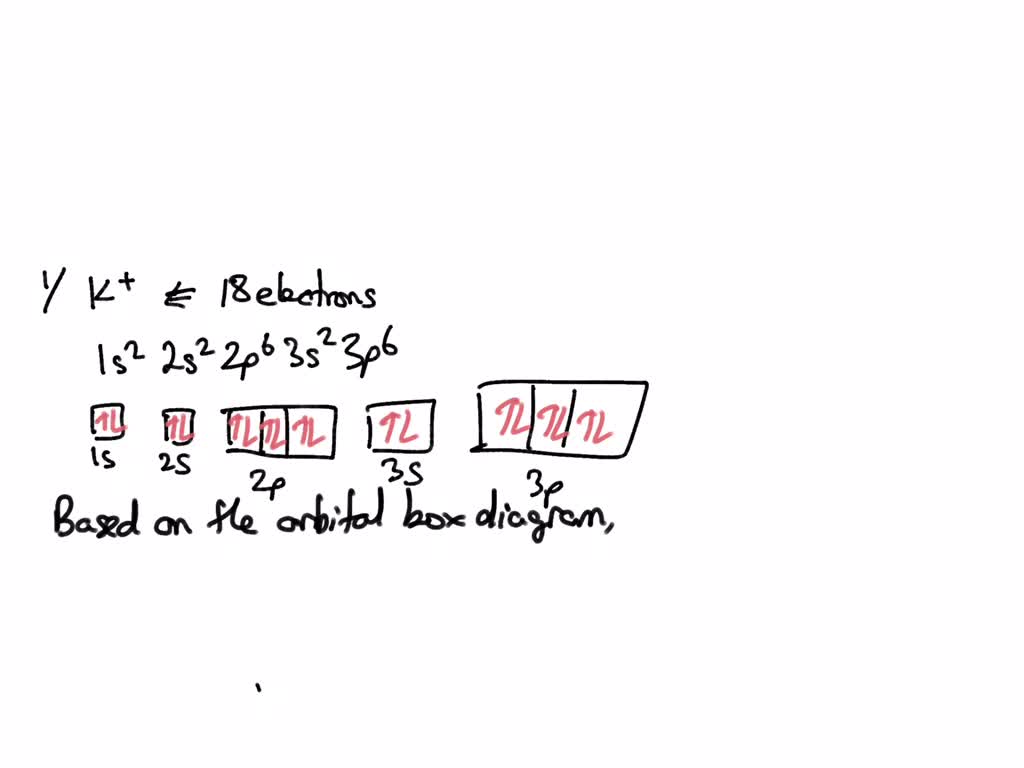 1/ K⁺ ⇐ 18 electrons
1s² 2s² 2p⁶ 3s² 3p⁶
↑↓ ↑↓ ↑↓ ↑↓ ↑↓ ↑↓ ↑↓ ↑↓ ↑↓
1s 2s 2p 3s 3p
Based on the orbital box diagram,